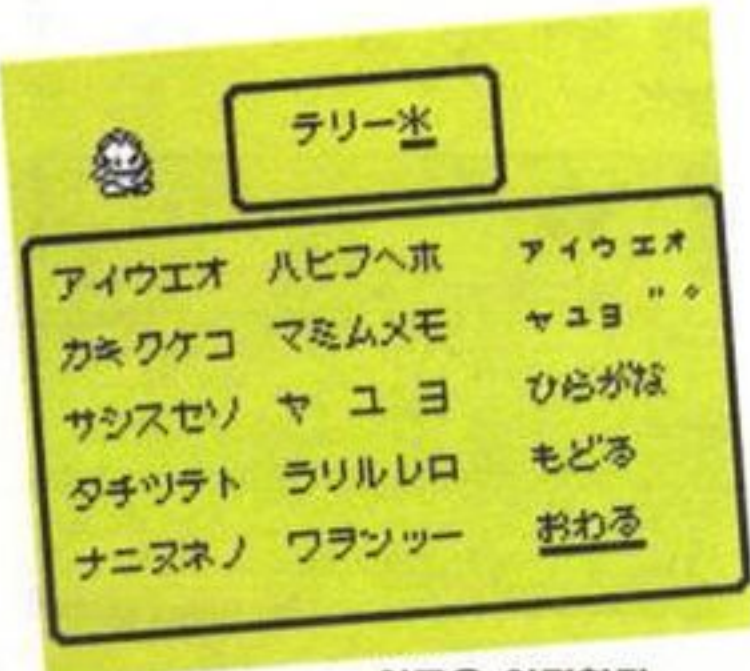 テリー*
アイウエオ ハヒフヘホ ァィゥェォ
カキクケコ マミムメモ ャュョ ゛゜
サシスセソ ヤ ユ ヨ ひらがな
タチツテト ラリルレロ もどる
ナニヌネノ ワヲンッー おわる